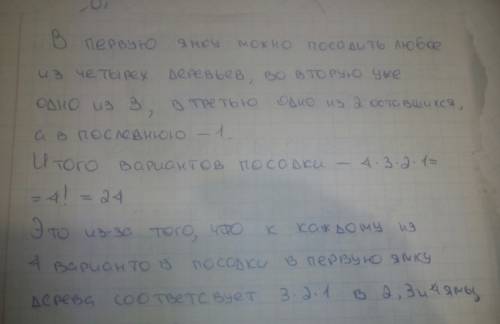 В первую ямку можно посадить любое
из четырех деревьев, во вторую уже
одно из 3, в третью одно из 2 оставшихся,
а в последнюю – 1.
Итого вариантов посадки – 4·3·2·1=
= 4! = 24
Это из-за того, что к каждому из
4 вариантов посадки в первую ямку
дерева соответсвует 3·2·1 в 2,3и4 ямы